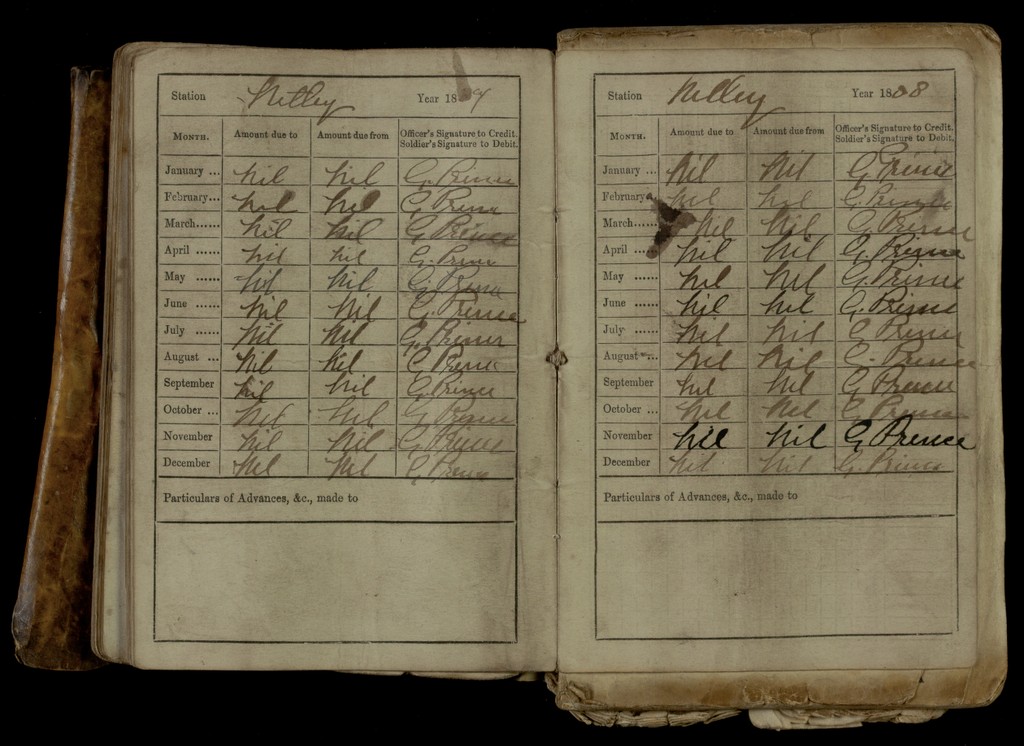 Station Netley Year 18
MONTH. Amount due to Amount due from Officer's Signature to Credit. Soldier's Signature to Debit.
January ... Nil Nil G. Prince
February... Nil Nil G. Prince
March...... Nil Nil G. Prince
April ...... Nil Nil G. Prince
May ...... Nil Nil G. Prince
June ...... Nil Nil G. Prince
July ...... Nil Nil G. Prince
August ... Nil Nil G. Prince
September Nil Nil G. Prince
October ... Nil Nil G. Prince
November Nil Nil G. Prince
December Nil Nil G. Prince
Particulars of Advances, &c., made to
Station Netley Year 1808
MONTH. Amount due to Amount due from Officer's Signature to Credit. Soldier's Signature to Debit.
January ... Nil Nil G. Prince
February Nil Nil G. Prince
March...... Nil Nil G. Prince
April ...... Nil Nil G. Prince
May ...... Nil Nil G. Prince
June ...... Nil Nil G. Prince
July ...... Nil Nil G. Prince
August ... Nil Nil G. Prince
September Nil Nil G. Prince
October ... Nil Nil G. Prince
November Nil Nil G. Prince
December Nil Nil G. Prince
Particulars of Advances, &c., made to